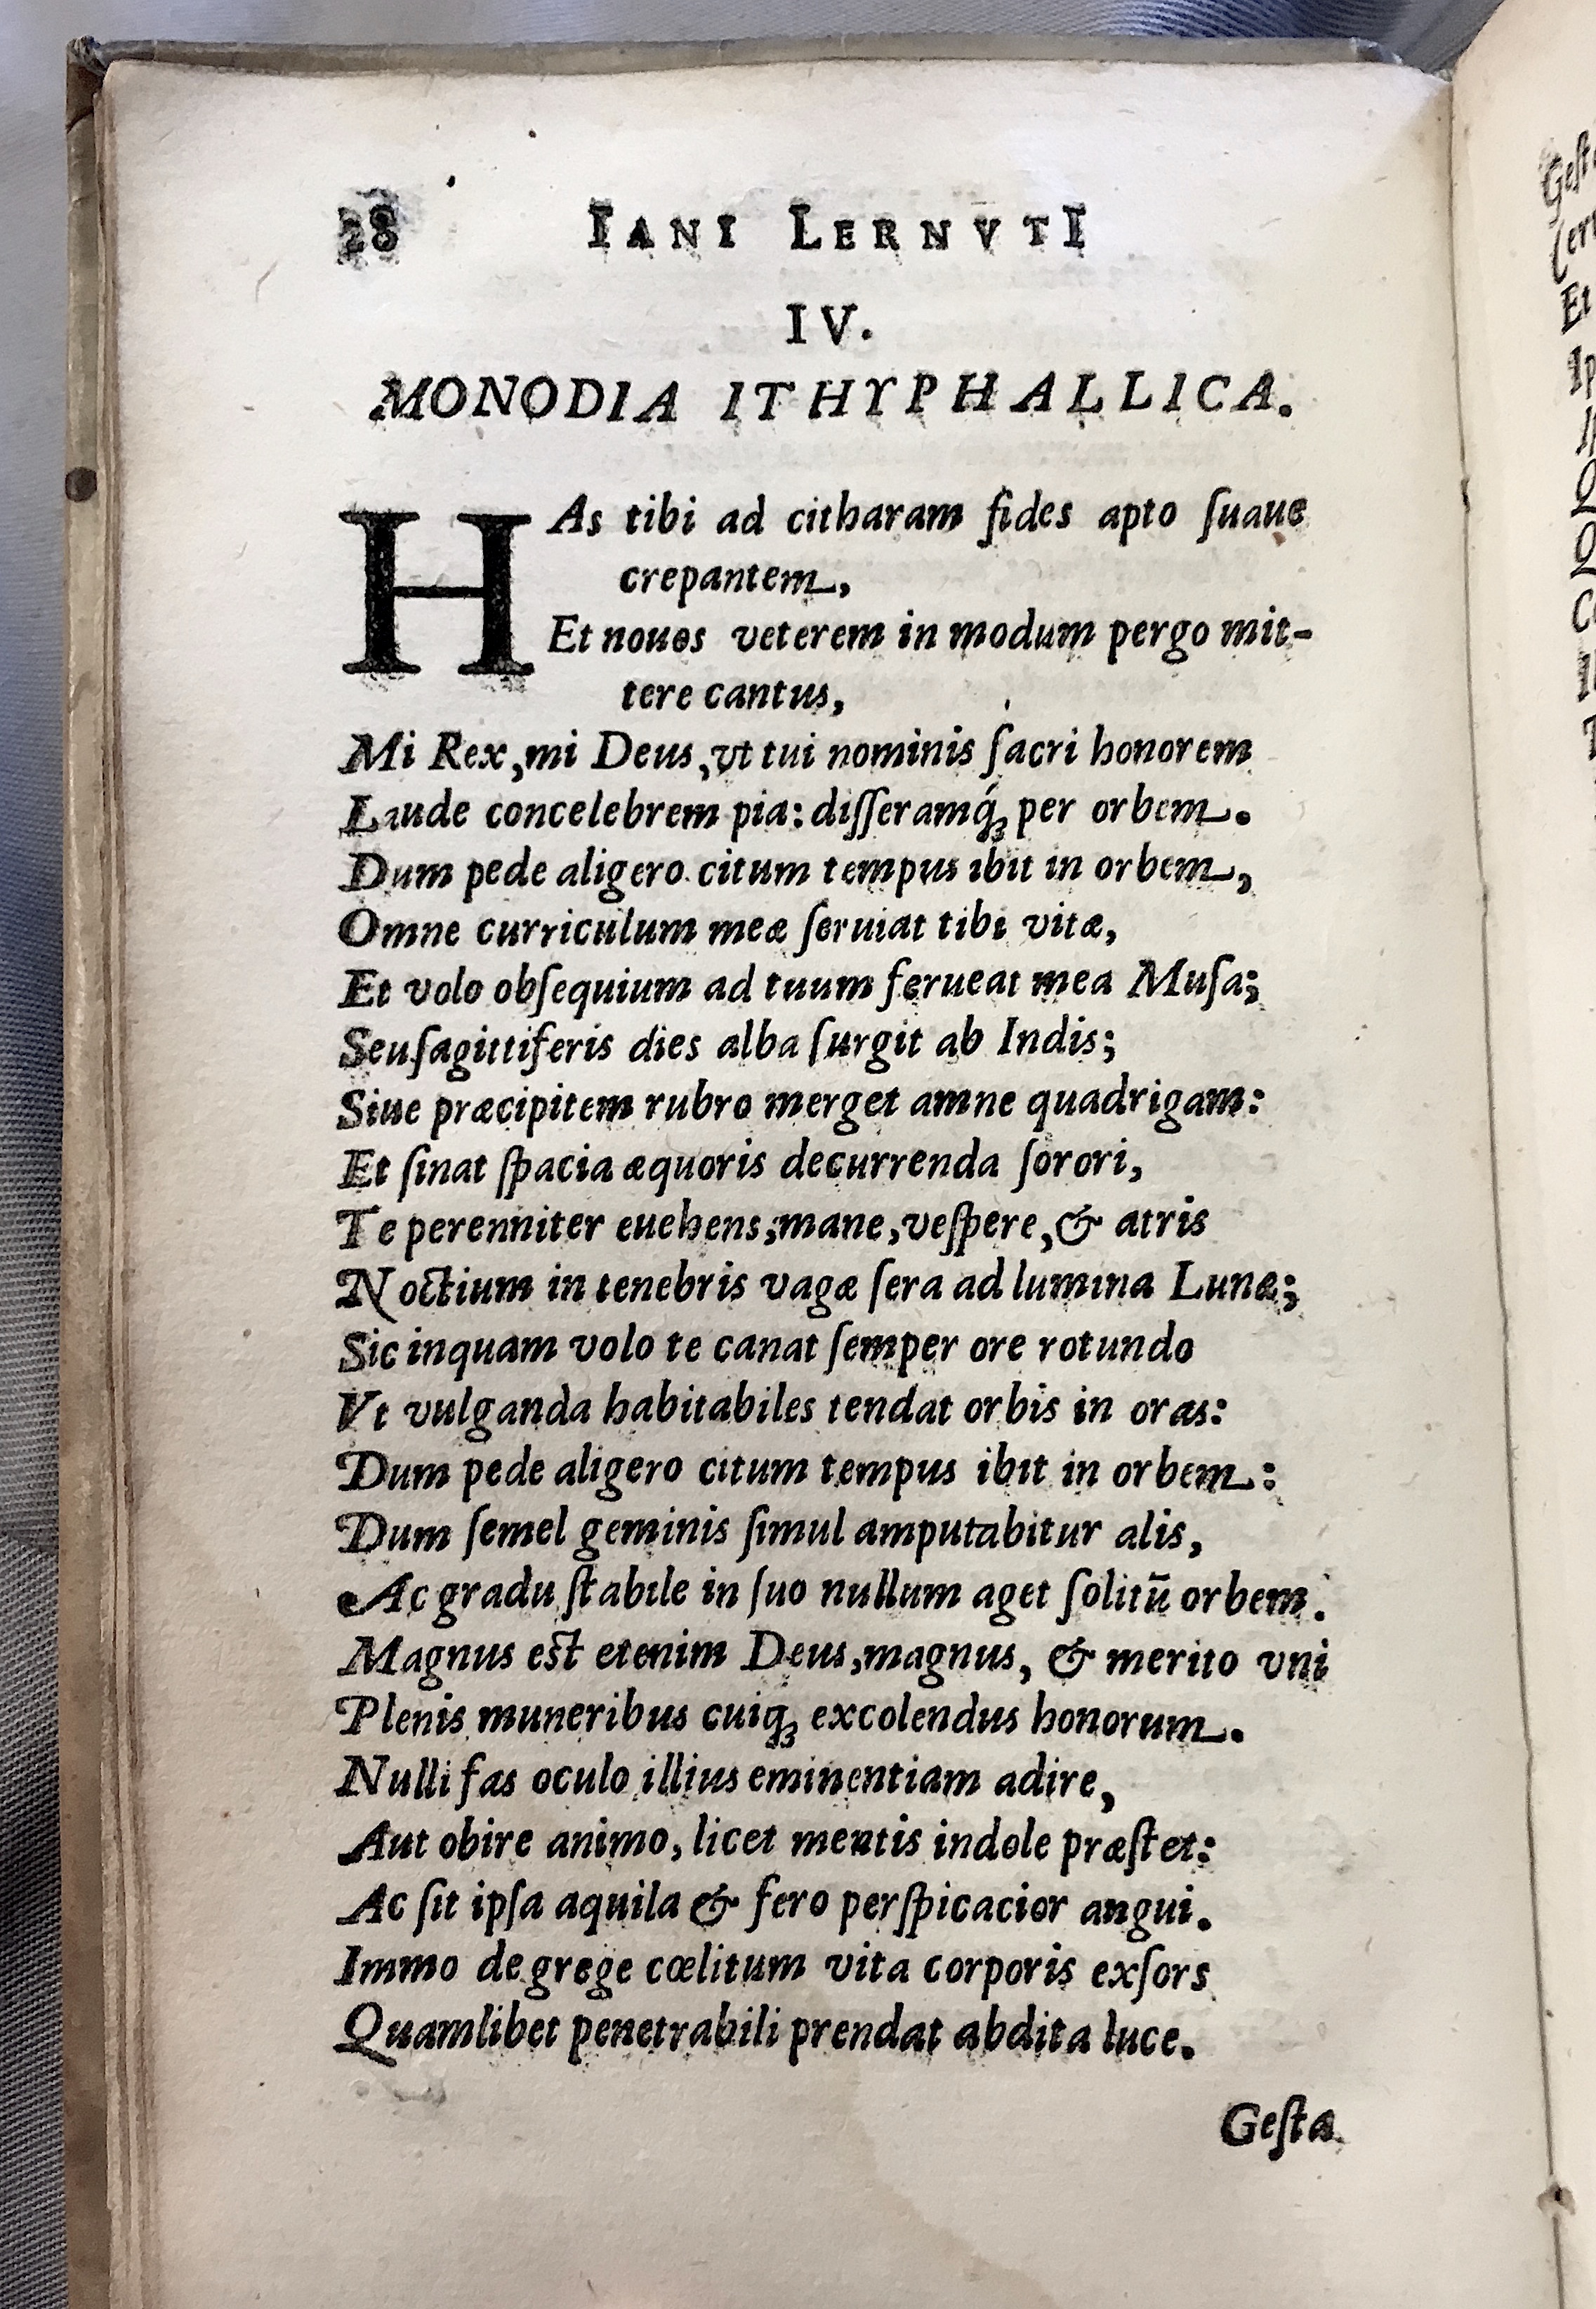 28 IANI LERNVTI
IV.
MONODIA ITHYPHALLICA.
HAs tibi ad citharam fides apto ſuaue
crepantem,
Et nouos veterem in modum pergo mit-
tere cantus,
Mi Rex, mi Deus, vt tui nominis ſacri honorem
Laude concelebrem pia: diſſeramq́ꝫ per orbem.
Dum pede aligero citum tempus ibit in orbem,
Omne curriculum meæ ſeruiat tibi vitæ,
Et volo obſequium ad tuum ferueat mea Muſa;
Seu ſagittiferis dies alba ſurgit ab Indis;
Siue præcipitem rubro merget amne quadrigam:
Et ſinat ſpacia æquoris decurrenda ſorori,
Te perenniter euehens; mane, veſpere, & atris
Noctium in tenebris vagæ ſera ad lumina Lunæ;
Sic inquam volo te canat ſemper ore rotundo
Vt vulganda habitabiles tendat orbis in oras:
Dum pede aligero citum tempus ibit in orbem:
Dum ſemel geminis ſimul amputabitur alis,
Ac gradu ſtabile in ſuo nullum aget ſolitū orbem.
Magnus eſt etenim Deus, magnus, & merito vni
Plenis muneribus cuiqꝫ excolendus honorum.
Nulli fas oculo illius eminentiam adire,
Aut obire animo, licet mentis indole præſtet:
Ac ſit ipſa aquila & fero perſpicacior angui.
Immo de grege cœlitum vita corporis exſors
Quamlibet penetrabili prendat abdita luce.
Geſta